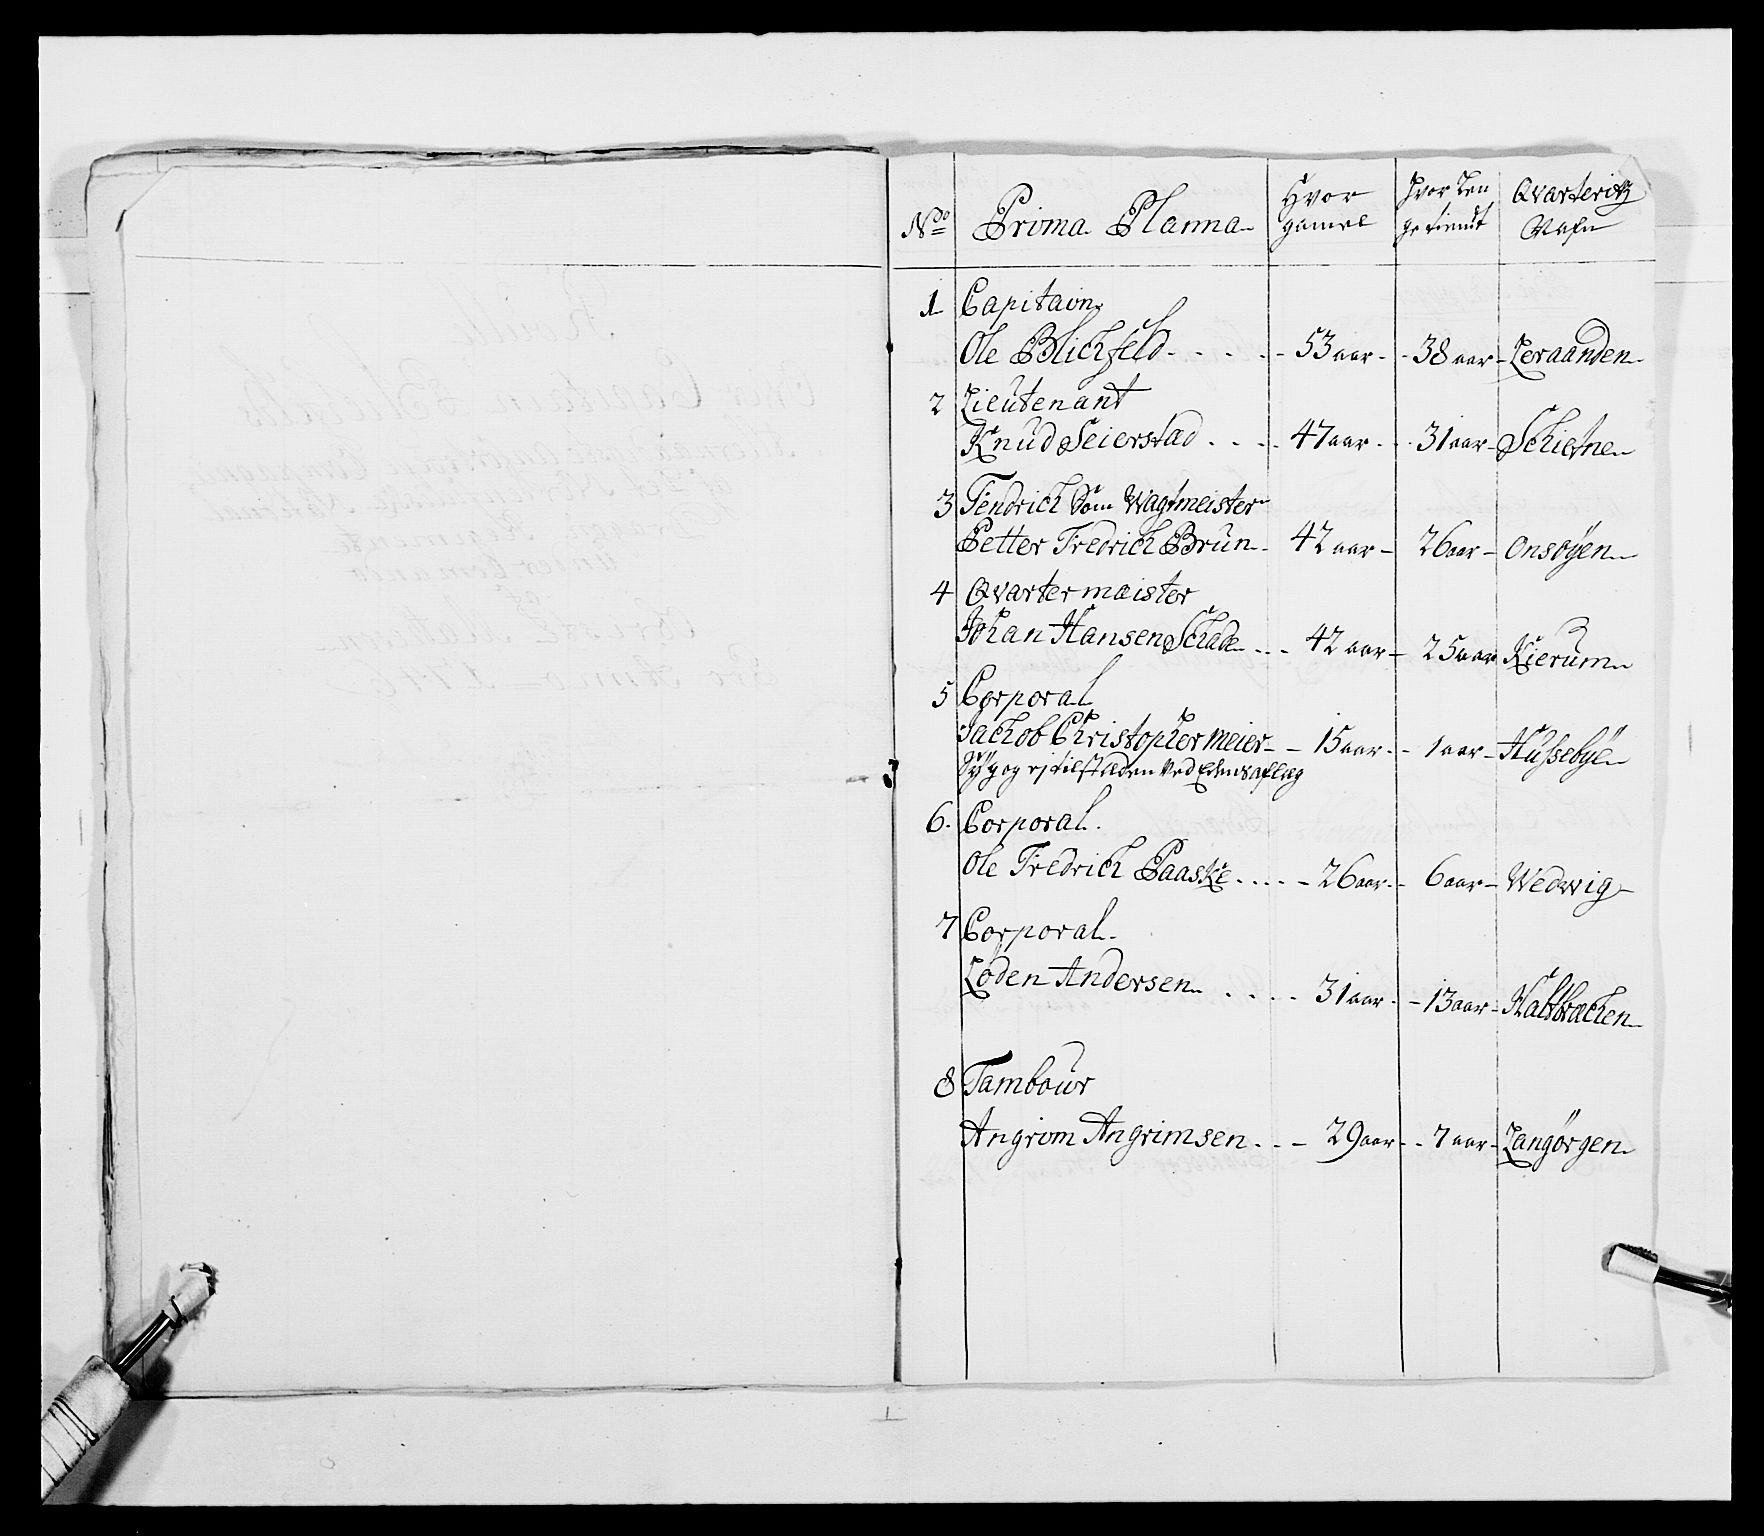 No Prima Planna Hvor gamel Hvor Len getient Qvarteritz Nafn
1 Capitain
Ole Blichfeld 53 aar 38 aar Leraanden
2 Lieutenant
Knud Seierstad 47 aar 31 aar Schietne
3 Fendrich Som Wagtmeister
Petter Fredrich Brun 42 aar 26 aar Onsöyen
4 Qvartermaister
Johan Hansen Schade 42 aar 25 aar Kierum
5 Corporal
Jachob Christopher meier 15 aar 1 aar Hussebye
Syg og ej tilstæden Ved Edens aflæg
6. Corporal.
Ole Fredrich Paaske 26 aar 6 aar Wedwig
7 Corporal.
Loden Andersen 31 aar 13 aar
8 Tambour
Angrim Angrimsen 29 aar 7 aar Langörgen